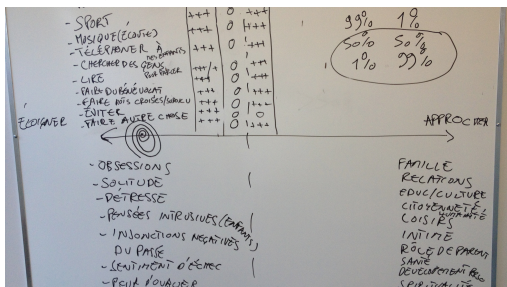 - SPORT +++ 0 +++
- MUSIQUE (ÉCOUTE) +++ 0 +++
- TÉLÉPHONER À MES ENFANTS +++ 0 +++
- CHERCHER DES GENS POUR PARLER +++ 0 +++
- LIRE +++ 0 +++
- FAIRE DU BÉNÉVOLAT +++ 0 +++
- FAIRE MOTS CROISÉS/SUDOKU +++ 0 +++
- ÉVITER +++ 0 0
- FAIRE AUTRE CHOSE +++ 0 +++
99% 1%
50% 50%
1% 99%
ÉLOIGNER
APPROCHER
- OBSESSIONS
- SOLITUDE
- DÉTRESSE
- PENSÉES INTRUSIVES (ENFANTS)
- INJONCTIONS NÉGATIVES
DU PASSÉ
- SENTIMENT D'ÉCHEC
- PEUR D'OUBLIER
FAMILLE
RELATIONS
EDUC/CULTURE
CITOYENNETÉ
LOISIRS
INTIME
RÔLE DE PARENT
SANTÉ
DÉVELOPPEMENT PERSO
SPIRITUALITÉ